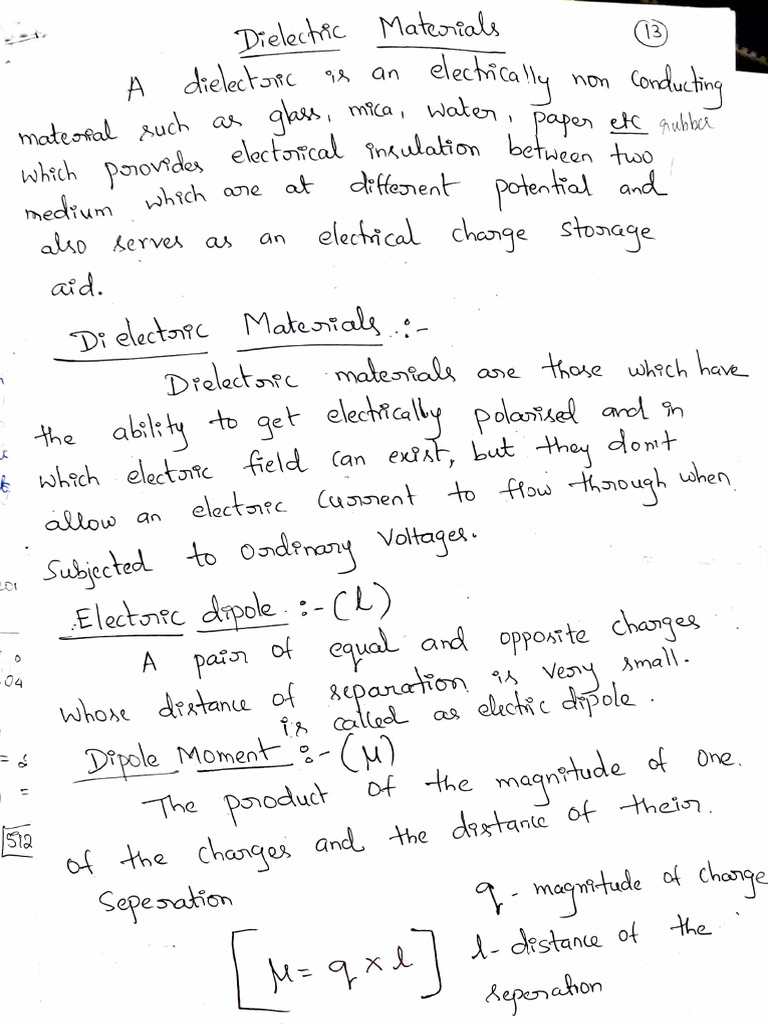 Dielectric Materials
13
A dielectric is an electrically non conducting
material such as glass, mica, water, paper etc rubber
which provides electrical insulation between two
medium which are at different potential and
also serves as an electrical charge storage
aid.
Dielectric Materials :-
Dielectric materials are those which have
the ability to get electrically polarised and in
which electric field can exist, but they don't
allow an electric current to flow through when
Subjected to Ordinary Voltages.
Electric dipole :- (l)
A pair of equal and opposite charges
whose distance of separation is very small.
is called as electric dipole.
Dipole Moment :- (μ)
The product of the magnitude of one.
of the charges and the distance of their.
Seperation
q - magnitude of charge
[μ = q × l]
l - distance of the
seperation
04
= 
512